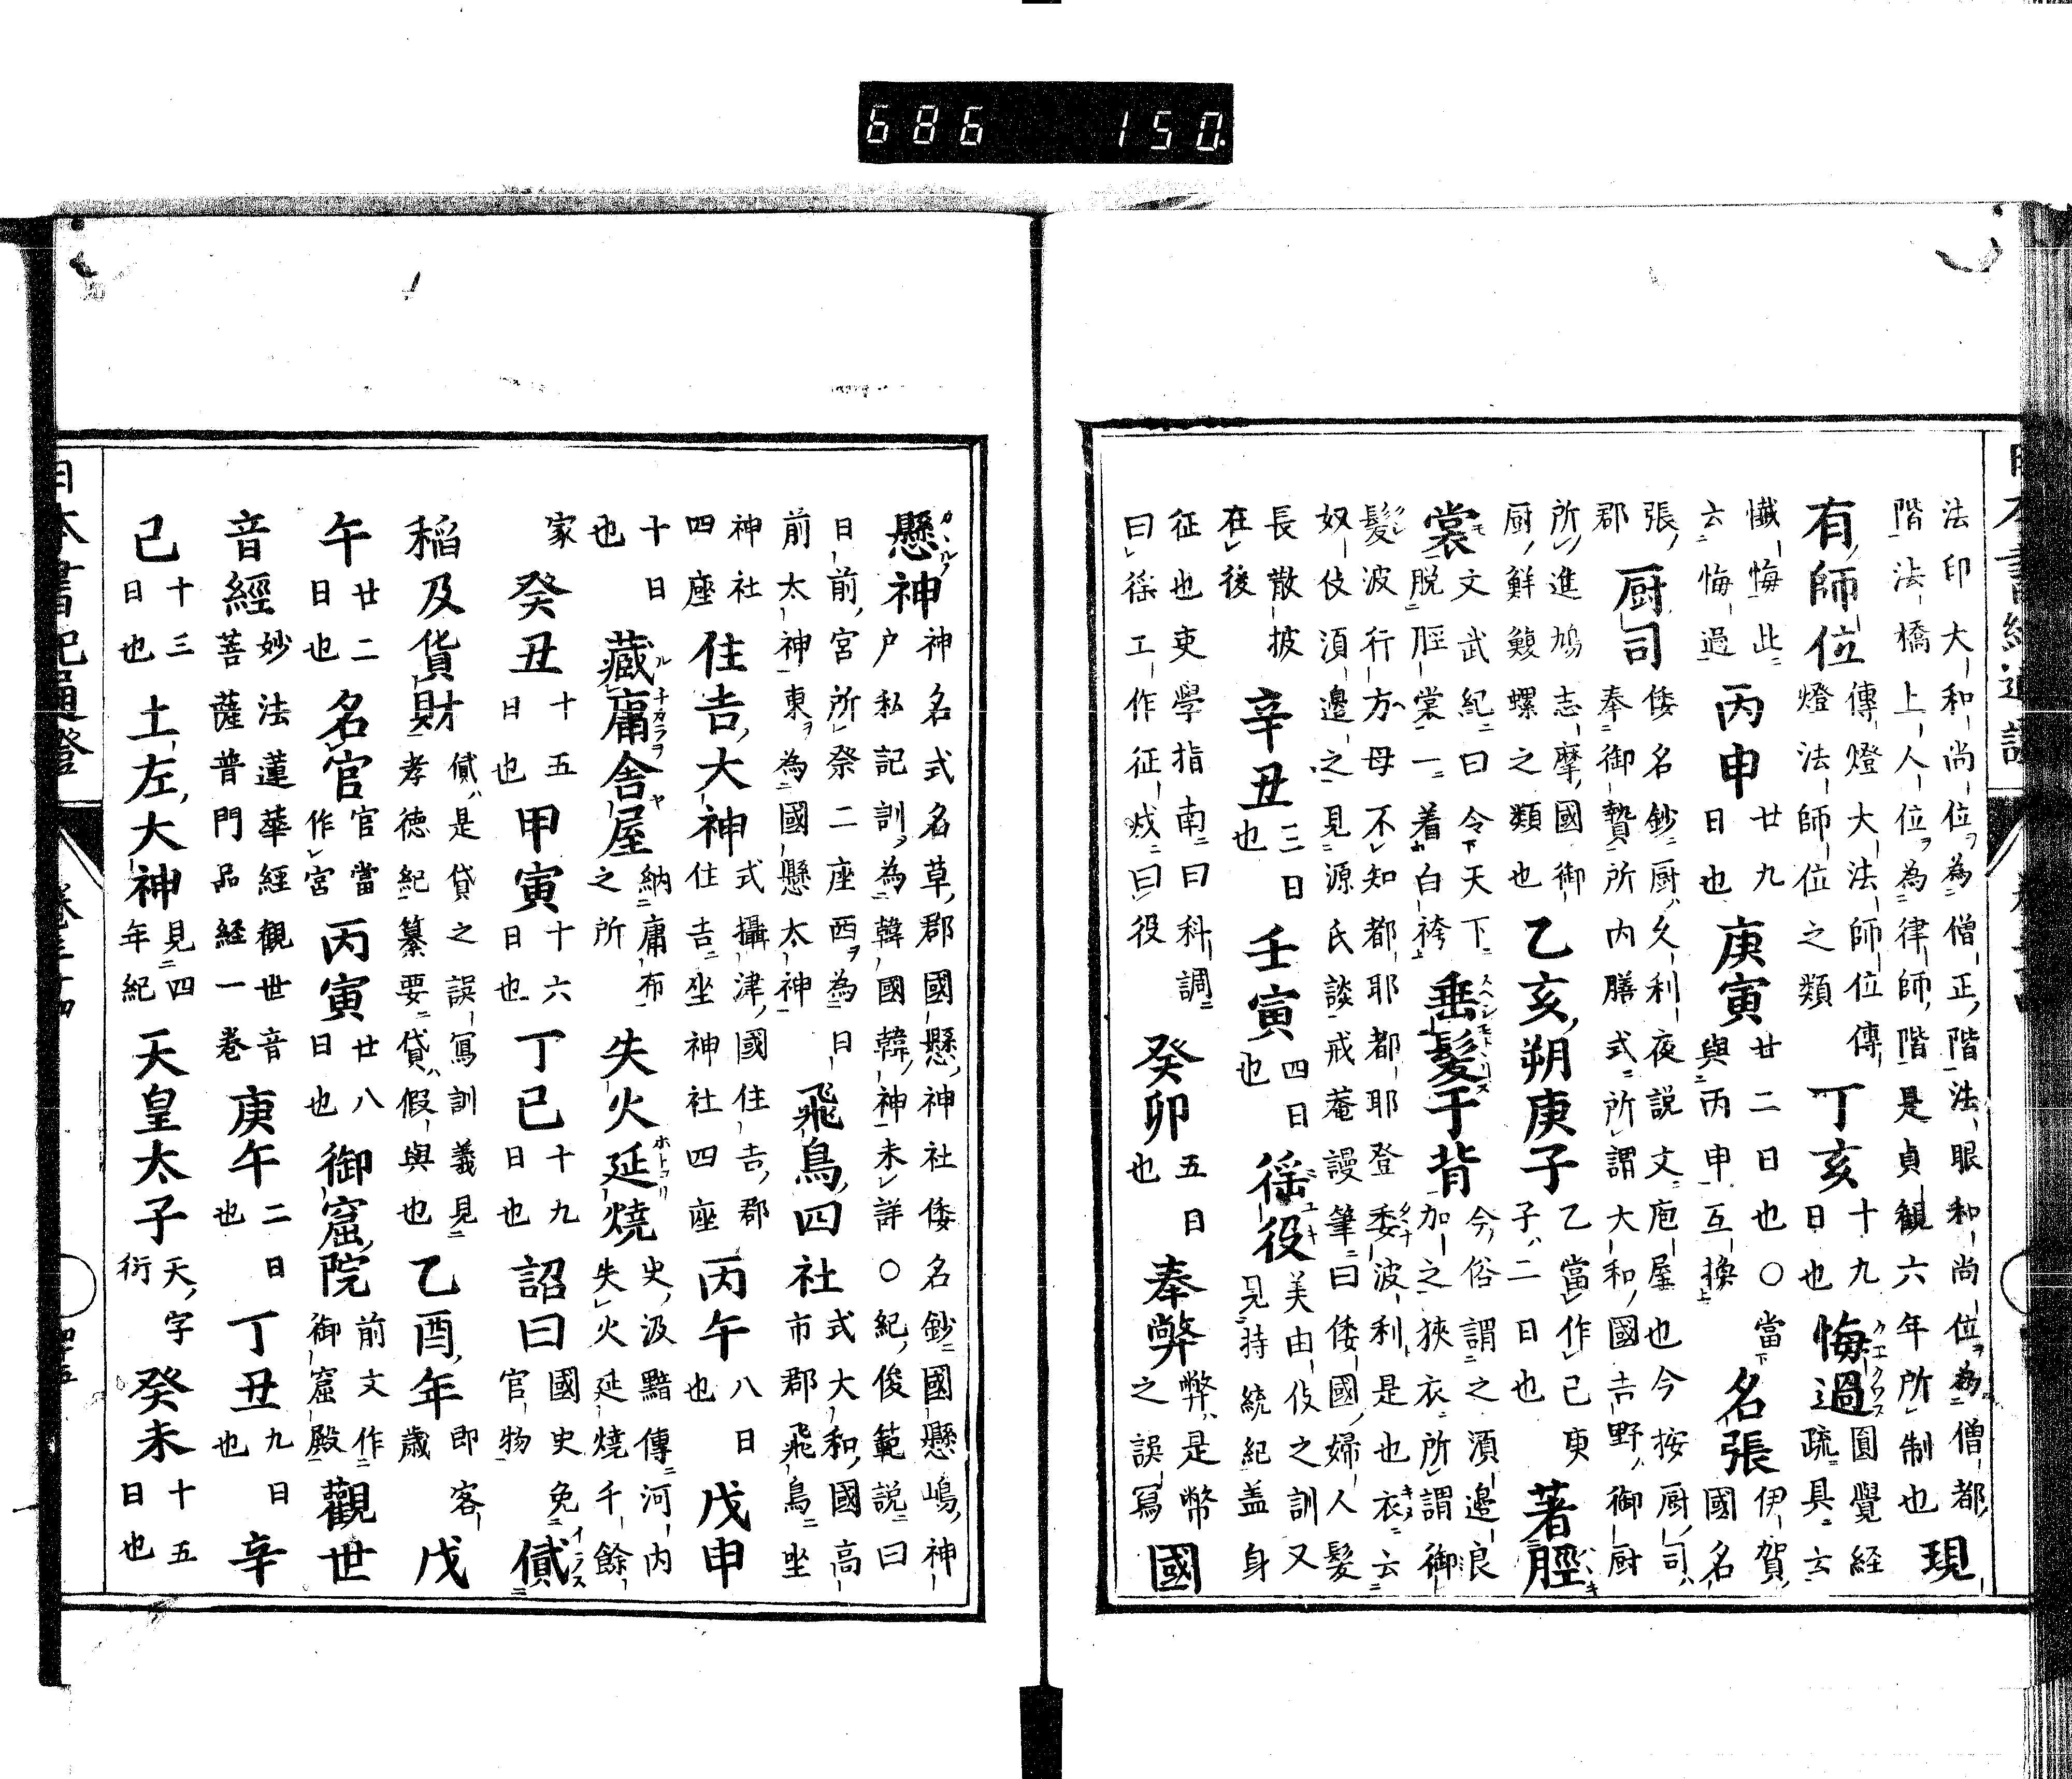 法印大和尚位為僧正階法眼和尚位為僧都
階法橋上人位為律師階是貞観六年所制也
現
有師位
傳燈大法師位傳
燈法師位之類
丁亥
十九
日也
悔過
圓覺経
疏具云
懺悔此
云悔過
丙申
廿九
日也
庚寅
廿二日也〇當
與丙申互換
名張
伊賀
國名
張
郡
厨司
倭名鈔厨久利夜説文庖屋也今按厨司
奉御贄所内膳式所謂大和國吉野御厨
所進鳩志摩國御
厨鮮鰒螺之類也
乙亥朔庚子
乙當作己庚
子二日也
著脛
裳
文武紀曰令天下
脱脛裳一着白袴
垂髪于背
今俗謂之湏邊良
加之狹衣所謂御
髪波行方母不知都耶都耶登委波利是也衣云
奴伎湏邊之見源氏談戒菴謾筆曰倭國婦人髪
長散披
在後
辛丑
三日
也
壬寅
四日
也
徭役
美由伎之訓又
見持統紀盖身
征也吏學指南曰科調
曰徭工作征戍曰役
癸卯
五日
也
奉弊
弊是幣
之誤冩
國
懸神
神名式名草郡國懸神社倭名鈔國懸嶋神
戸私記訓為韓國韓神未詳〇紀俊範説曰
日前宮所祭二座西為日
前太神東為國懸太神
飛鳥四社
式大和國高
市郡飛鳥坐
神社
四座
住吉大神
式攝津國住吉郡
住吉坐神社四座
丙午
八日
也
戊申
十日
也
藏庸舎屋
納庸布
之所
失火延燒
史汲黯傳河内
失火延燒千餘
家
癸丑
十五
日也
甲寅
十六
日也
丁巳
十九
日也
詔曰
國史免
官物
貣
稲及貨財
貣是貸之誤冩訓義見
孝徳紀纂要貸假與也
乙酉年
即客
歳
戊
午
廿二
日也
名官
官當
作宮
丙寅
廿八
日也
御窟院
前文作
御窟殿
觀世
音經
妙法蓮華經觀世音
菩薩普門品経一巻
庚午
二日
也
丁丑
九日
也
辛
己
十三
日也
土左大神
見四
年紀
天皇太子
天字
衍
癸未
十五
日也
日本書紀通證
四十五